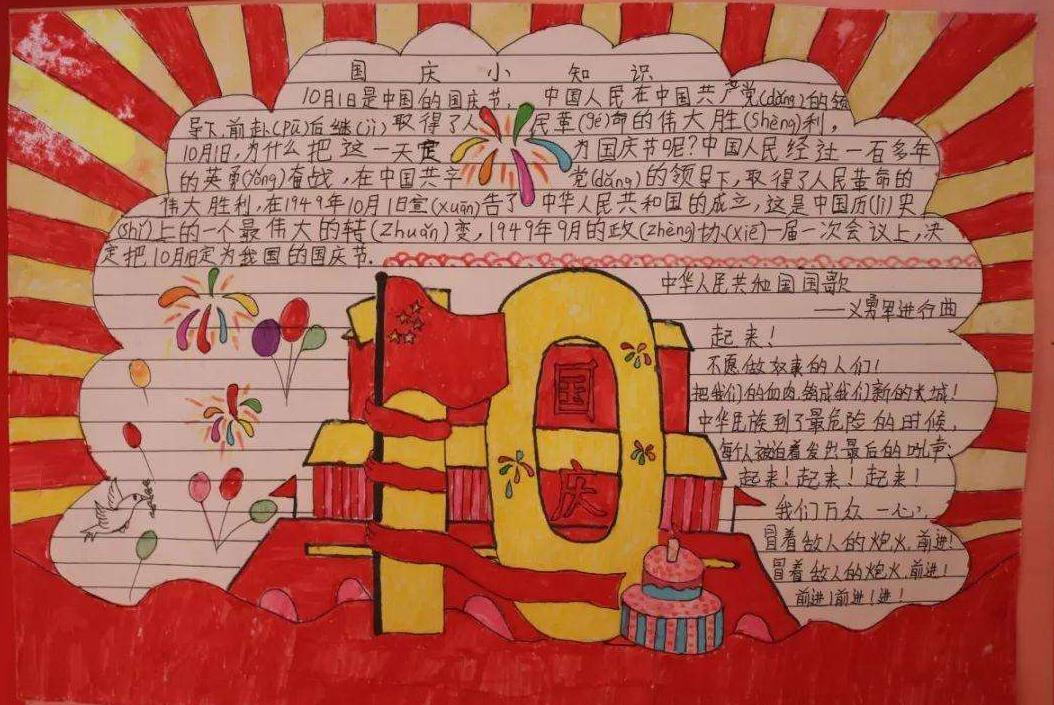 国庆小知识
10月1日是中国的国庆节，中国人民在中国共产党(dǎng)的领
导下,前赴(pū)后继(jì)取得了人民革(gé)命的伟大胜(shèng)利，
10月1日,为什么把这一天定为国庆节呢?中国人民经过一百多年
的英勇(yǒng)奋战,在中国共产党(dǎng)的领导下,取得了人民革命的
伟大胜利,在1949年10月1日宣(xuān)告了中华人民共和国的成立,这是中国历(lì)史
(shǐ)上的一个最伟大的转(zhuǎn)变,1949年9月的政(zhèng)协(xié)一届一次会议上,决
定把10月1日定为我国的国庆节.
中华人民共和国国歌
——义勇军进行曲
起来!
不愿做奴隶的人们!
把我们的血肉,筑成我们新的长城!
中华民族到了最危险的时候,
每个人被迫着发出最后的吼声:
起来!起来!起来!
我们万众一心,
冒着敌人的炮火,前进!
冒着敌人的炮火,前进!
前进!前进!进!
国
庆